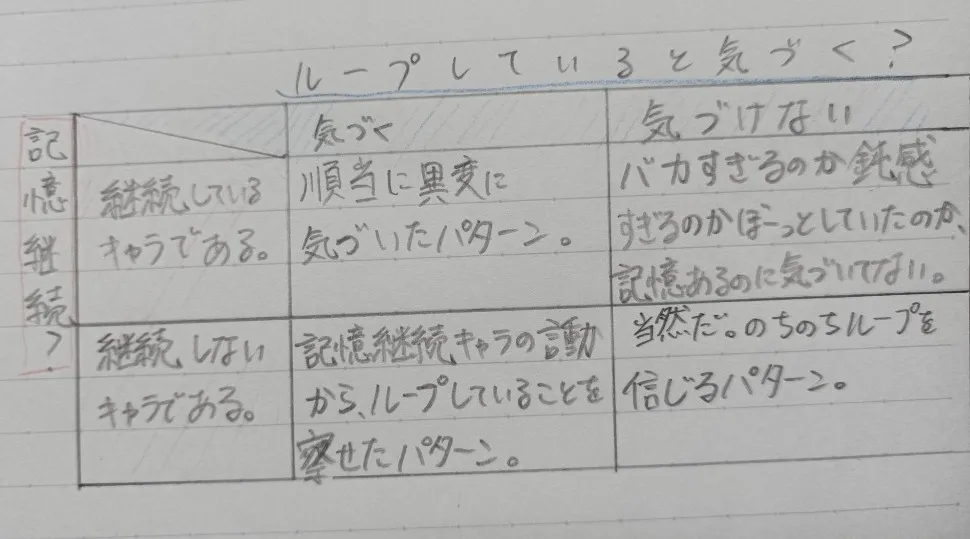 ループしていると気づく?
記憶継続?
気づく
気づけない
継続している
キャラである。
順当に異変に
気づいたパターン。
バカすぎるのか鈍感
すぎるのかぼーっとしていたのか、
記憶あるのに気づいてない。
継続しない
キャラである。
記憶継続キャラの言動
から、ループしていることを
察せたパターン。
当然だ。のちのちループを
信じるパターン。